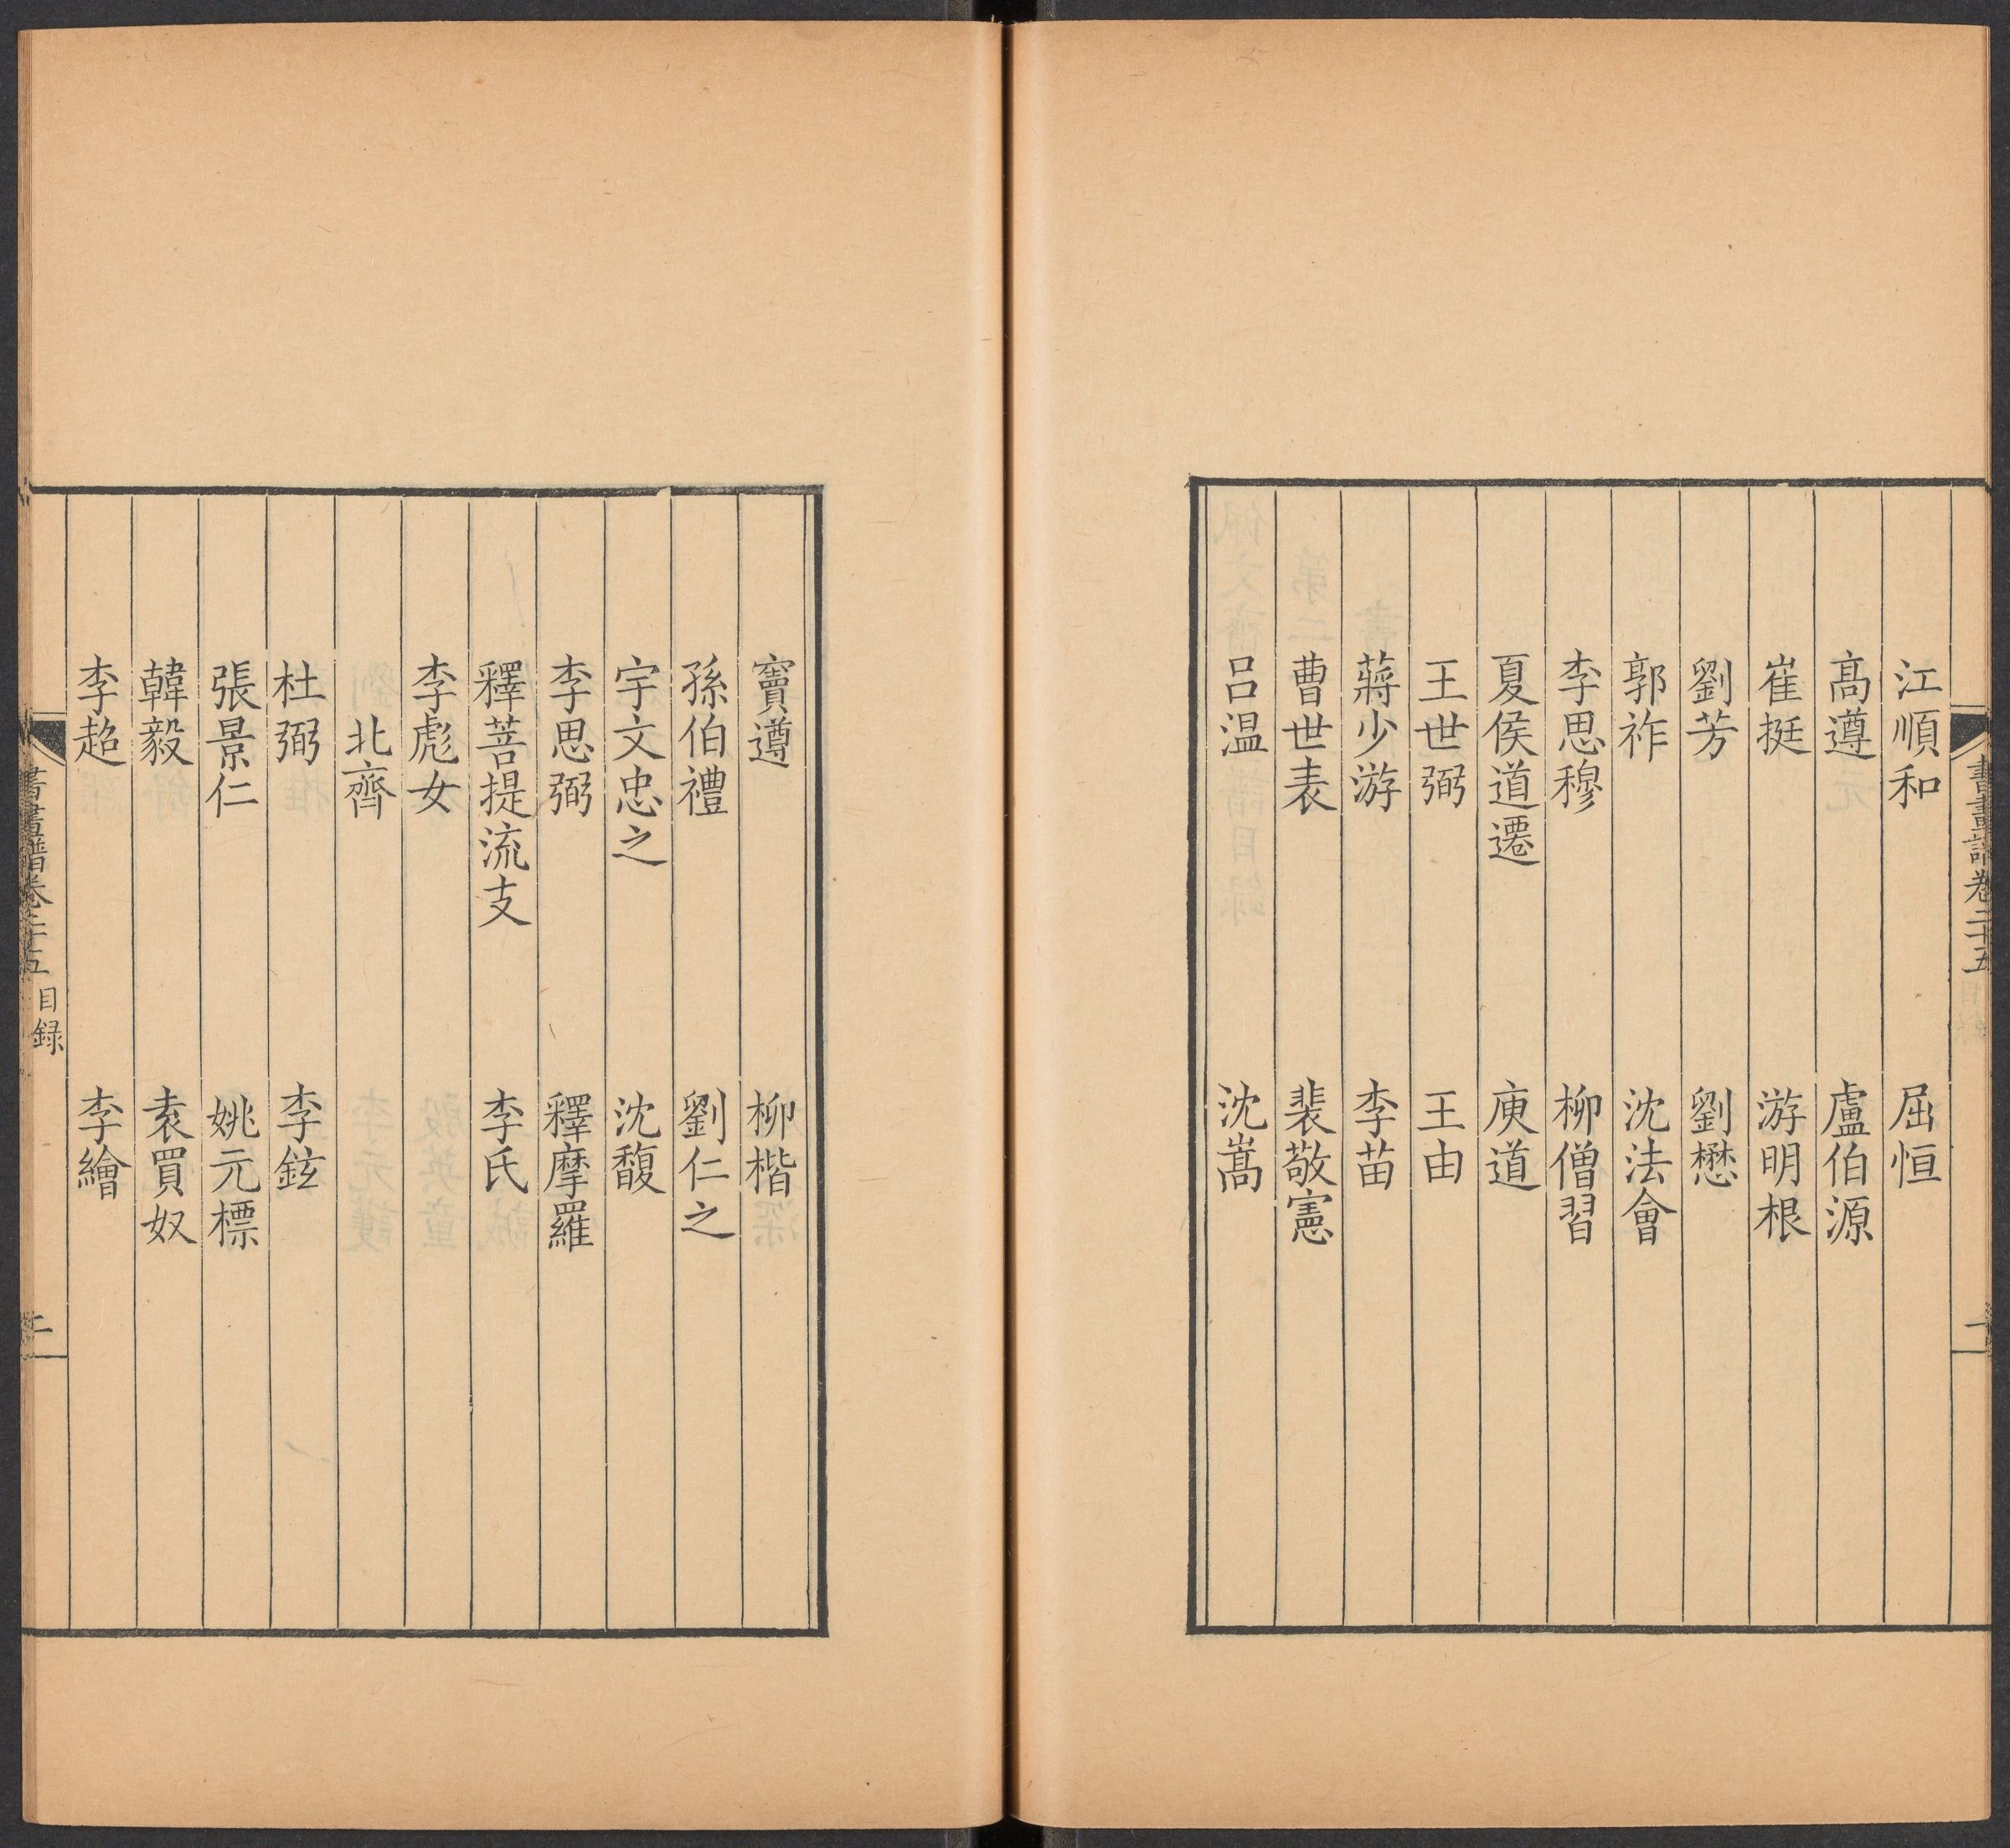 書畫譜卷二十五
一
江順和 屈恒
高遵 盧伯源
崔挺 游明根
劉芳 劉懋
郭祚 沈法會
李思穆 柳僧習
夏侯道遷 庾道
王世弼 王由
蔣少游 李苗
曹世表 裴敬憲
呂温 沈嵩
竇遵 柳楷
孫伯禮 劉仁之
宇文忠之 沈馥
李思弼 釋摩羅
釋菩提流支 李氏
李彪女
北齊
杜弼 李鉉
張景仁 姚元標
韓毅 袁買奴
李超 李繪
書畫譜卷二十五 目録
二